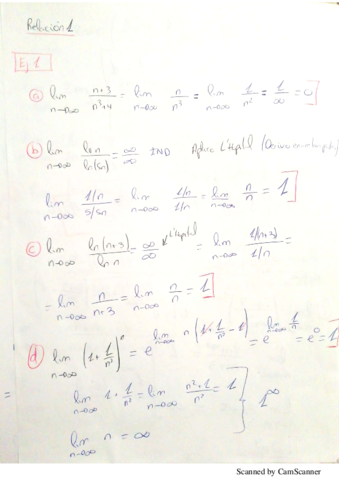 Relación 1
Ej 1
a) lim n→∞ (n+3)/(n³+4) = lim n→∞ n/n³ = lim n→∞ 1/n² = 1/∞ = 0
b) lim n→∞ ln n/ln(5n) = ∞/∞ IND Aplico L'Hopital
lim n→∞ (1/n)/(5/5n) = lim n→∞ (1/n)/(1/n) = lim n→∞ n/n = 1
c) lim n→∞ ln(n+3)/ln n = ∞/∞ L'Hopital = lim n→∞ (1/(n+3))/(1/n) =
= lim n→∞ n/(n+3) = lim n→∞ n/n = 1
d) lim n→∞ (1+1/n²)^n = e^(lim n→∞ n(1+1/n²-1)) = e^(lim n→∞ 1/n) = e^0 = 1
= lim n→∞ 1+1/n² = lim n→∞ (n²+1)/n² = 1 } 1^∞
lim n→∞ n = ∞
Scanned by CamScanner